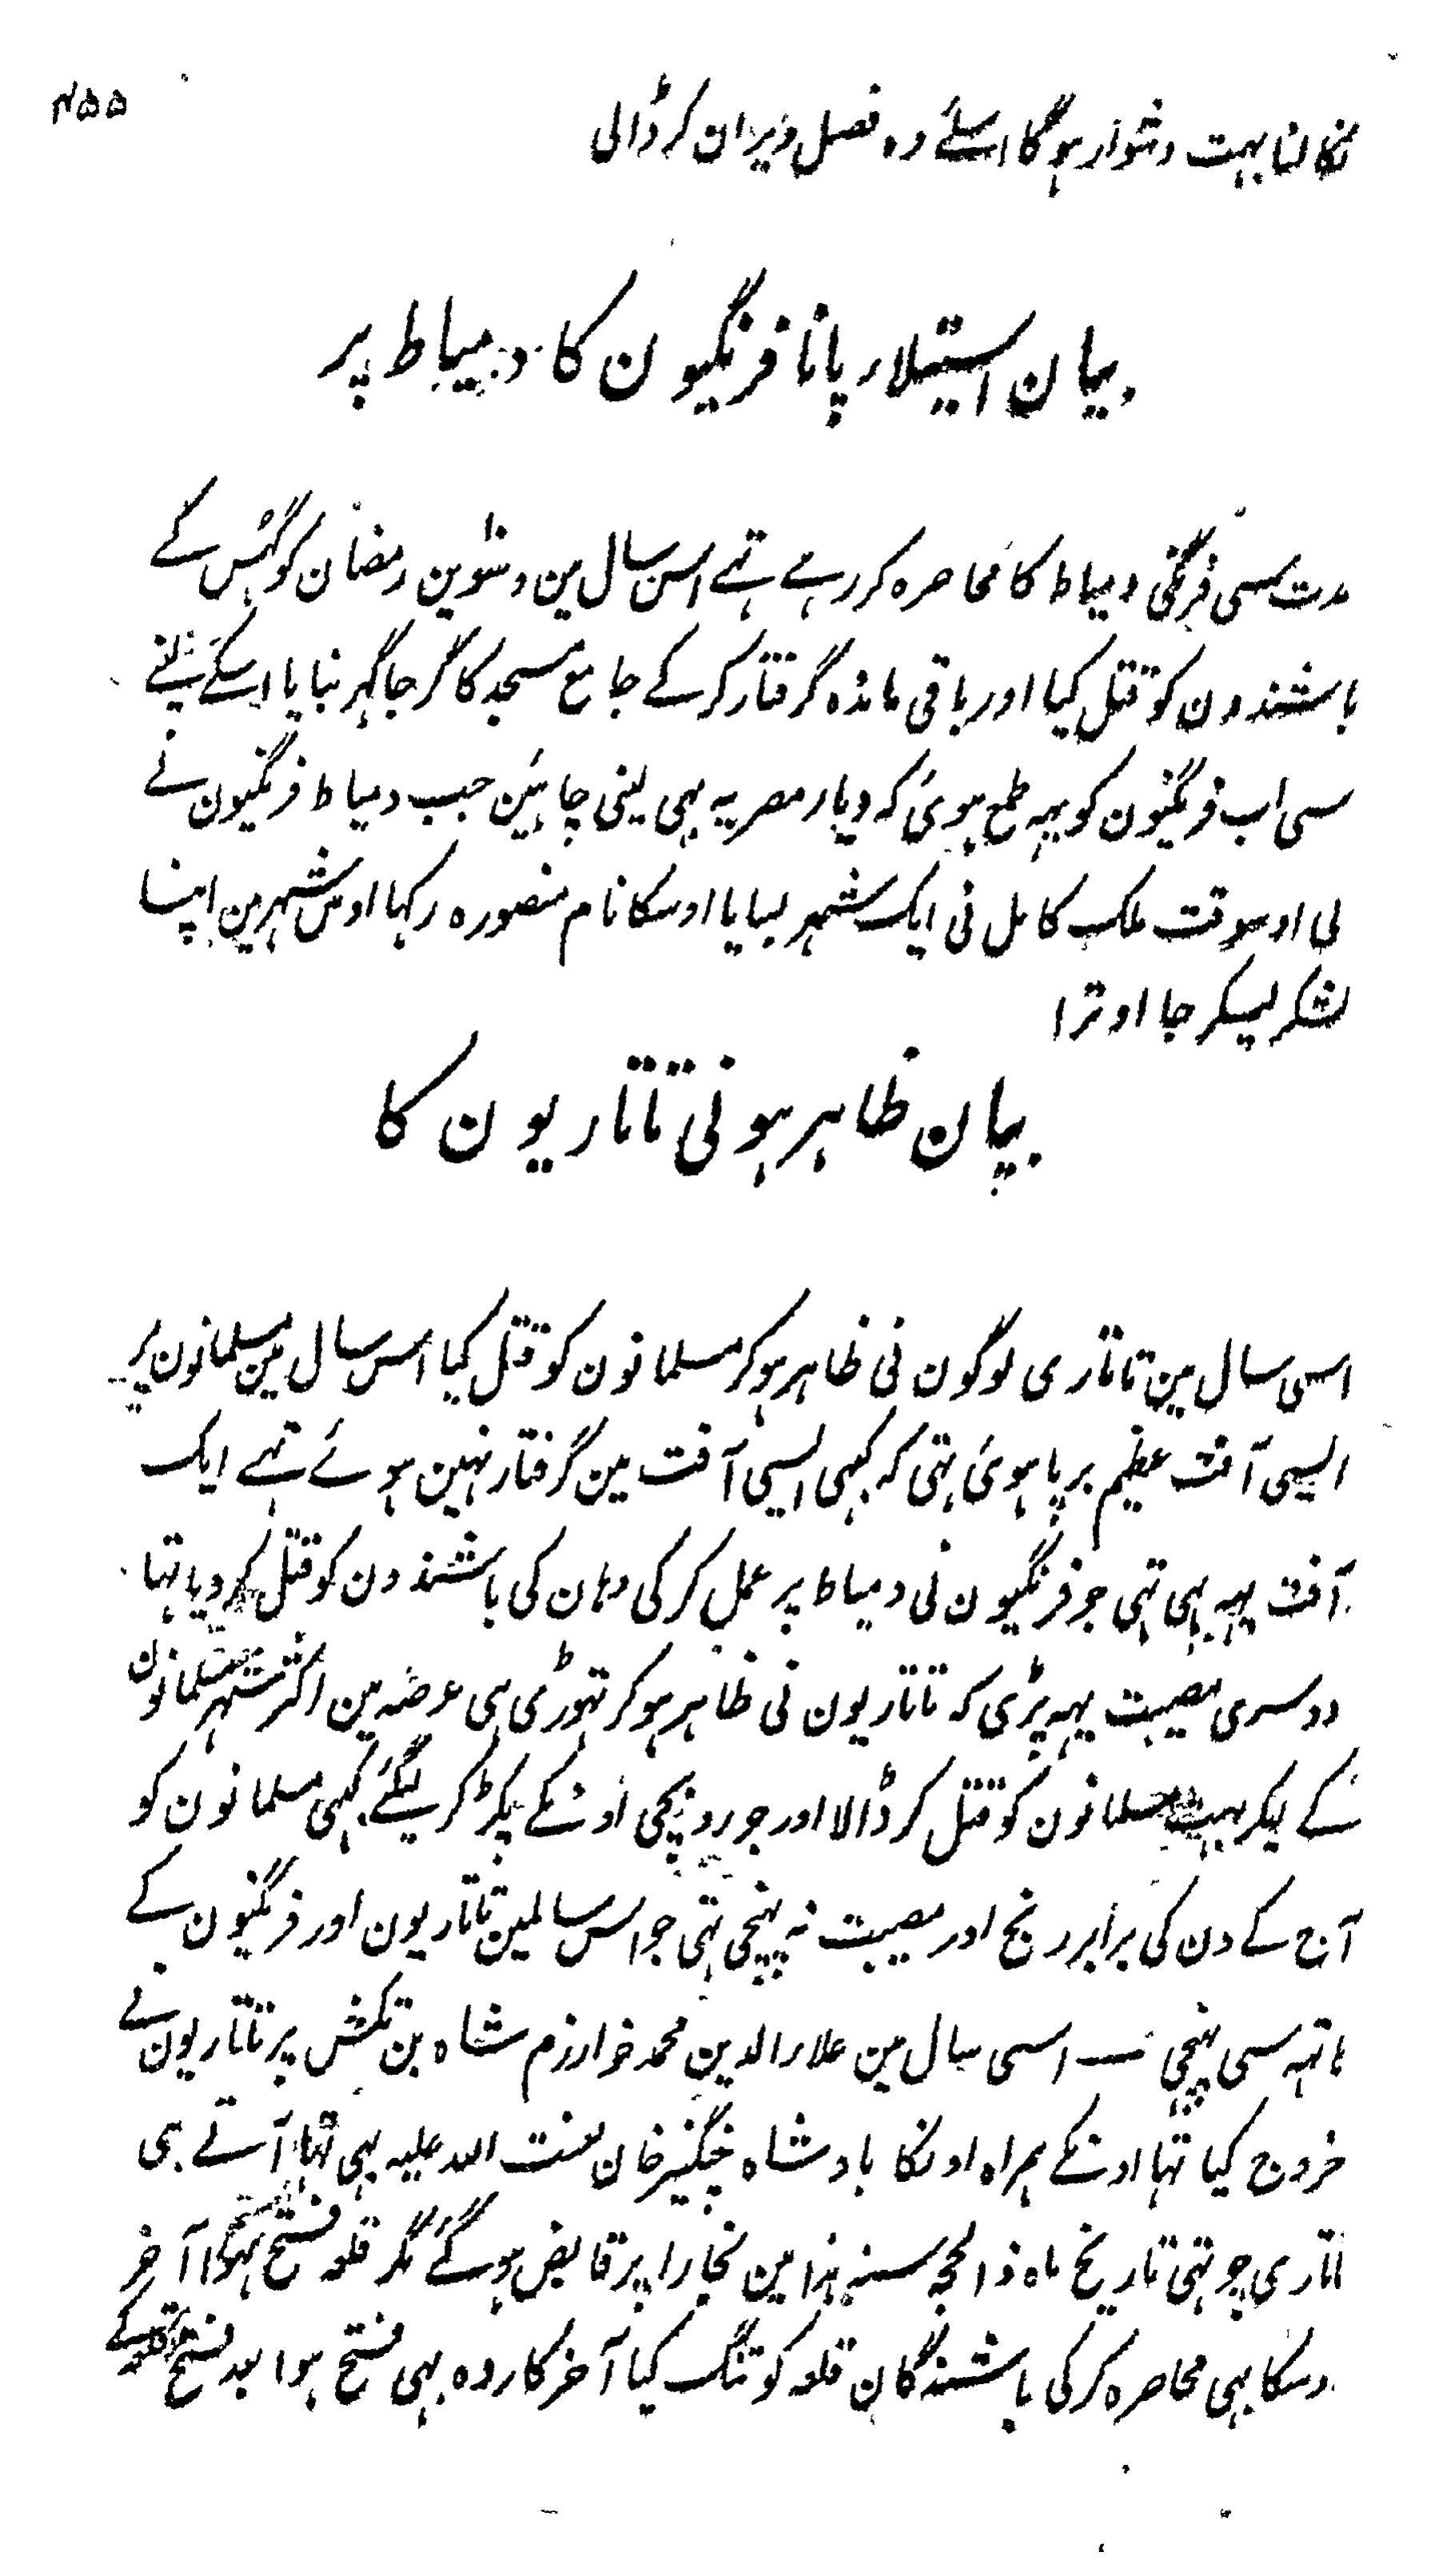 ۴۵۵
نکالنا بہت دشوار ہوگا اسلئے وہ فصل ویران کر ڈالی
بیان استیلار پانا فرنگیون کا دمیاط پر
مدت سی فرنگی دمیاط کا محاصرہ کر رہے تہے اسی سال مین دسوین رمضان کو گہس کے
باشندون کو قتل کیا اور باقی ماندہ گرفتار کر کے جامع مسجد کا گرجا گہر بنایا اسکے لینے
سی اب فرنگیون کو یہہ طمع ہوئی کہ دیار مصریہ بہی لینی چاہئین جب دمیاط فرنگیون نے
لی اوسوقت ملک کامل نی ایک شہر بسایا اوسکا نام منصورہ رکہا اوس شہر مین اپنا
لشکر لیکر جا اوترا
بیان ظاہر ہونی تاتاریون کا
اسی سال مین تاتاری لوگون نی ظاہر ہوکر مسلمانون کو قتل کیا اس سال مین مسلمانون پر
ایسی آفت عظیم برپا ہوئی تہی کہ کبہی ایسی آفت مین گرفتار نہین ہوئے تہے ایک
آفت یہہ بہی تہی جو فرنگیون نی دمیاط پر عمل کر کی وہان کی باشندون کو قتل کر دیا تہا
دوسری مصیبت یہہ پڑی کہ تاتاریون نی ظاہر ہوکر تہوڑی ہی عرصہ مین اکثر شہر مسلمانون
کے لیکر بہت مسلمانون کو قتل کر ڈالا اور جورو بچی اونکے پکڑ کر لیگئے کبہی مسلمانون کو
آج کے دن کی برابر رنج اور مصیبت نہ پہنچی تہی جو اس سالمین تاتاریون اور فرنگیون کے
ہاتہہ سی پہنچی اسی سال مین علاءالدین محمد خوارزم شاہ بن تکش پر تاتاریون نے
خروج کیا تہا اونکے ہمراہ اونکا بادشاہ چنگیز خان لعنت اللہ علیہ بہی تہا آتے ہی
تاتاری چوتہی تاریخ ماہ ذالحجہ سنہ ہذا مین بخارا پر قابض ہوگئے مگر قلعہ فتح نہوا آخر
اوسکا بہی محاصرہ کر کی باشندگان قلعہ کو تنگ کیا آخر کار وہ بہی فتح ہوا بعد فتح قلعہ کے